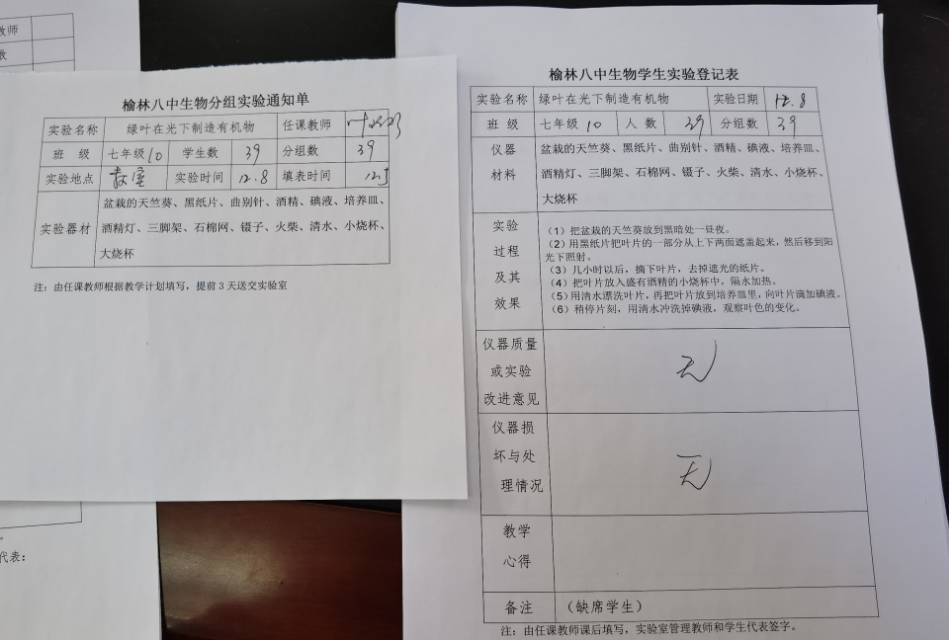 教师
数
榆林八中生物分组实验通知单
实验名称 绿叶在光下制造有机物 任课教师
班 级 七年级 10 学生数 39 分组数 39
实验地点 教室 实验时间 12.8 填表时间 12.5
实验器材 盆栽的天竺葵、黑纸片、曲别针、酒精、碘液、培养皿、
酒精灯、三脚架、石棉网、镊子、火柴、清水、小烧杯、
大烧杯
注：由任课教师根据教学计划填写，提前3天送交实验室
代表：
榆林八中生物学生实验登记表
实验名称 绿叶在光下制造有机物 实验日期 12.8
班 级 七年级 10 人 数 39 分组数 39
仪器
材料
盆栽的天竺葵、黑纸片、曲别针、酒精、碘液、培养皿、
酒精灯、三脚架、石棉网、镊子、火柴、清水、小烧杯、
大烧杯
实验
过程
及其
效果
（1）把盆栽的天竺葵放到黑暗处一昼夜。
（2）用黑纸片把叶片的一部分从上下两面遮盖起来，然后移到阳
光下照射。
（3）几小时以后，摘下叶片，去掉遮光的纸片。
（4）把叶片放入盛有酒精的小烧杯中，隔水加热。
（5）用清水漂洗叶片，再把叶片放到培养皿里，向叶片滴加碘液。
（6）稍停片刻，用清水冲洗掉碘液，观察叶色的变化。
仪器质量
或实验
改进意见
无
仪器损
坏与处
理情况
无
教学
心得
备注 （缺席学生）
注：由任课教师课后填写，实验室管理教师和学生代表签字。